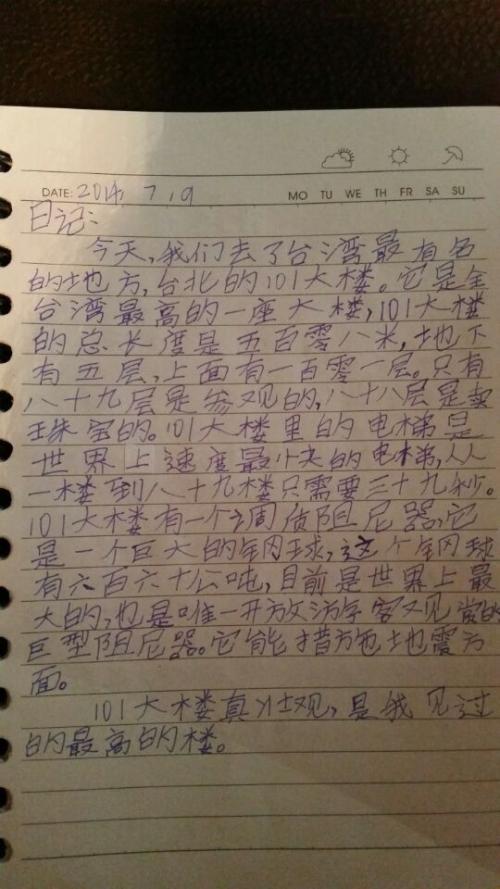 DATE: 2014, 7, 9 MO TU WE TH FR SA SU
日记:
今天,我们去了台湾最有名
的地方,台北的101大楼。它是全
台湾最高的一座大楼,101大楼
的总长度是五百零八米,地下
有五层,上面有一百零一层。只有
八十九层是参观的,八十八层是卖
珠宝的。101大楼里的电梯是
世界上速度最快的电梯,从
一楼到八十九楼只需要三十九秒。
101大楼有一个调质阻尼器,它
是一个巨大的钢球,这个钢球
有六百六十公吨,目前是世界上最
大的,也是唯一开放游客观赏的
巨型阻尼器。它能措施地震方
面。
101大楼真壮观,是我见过
的最高的楼。